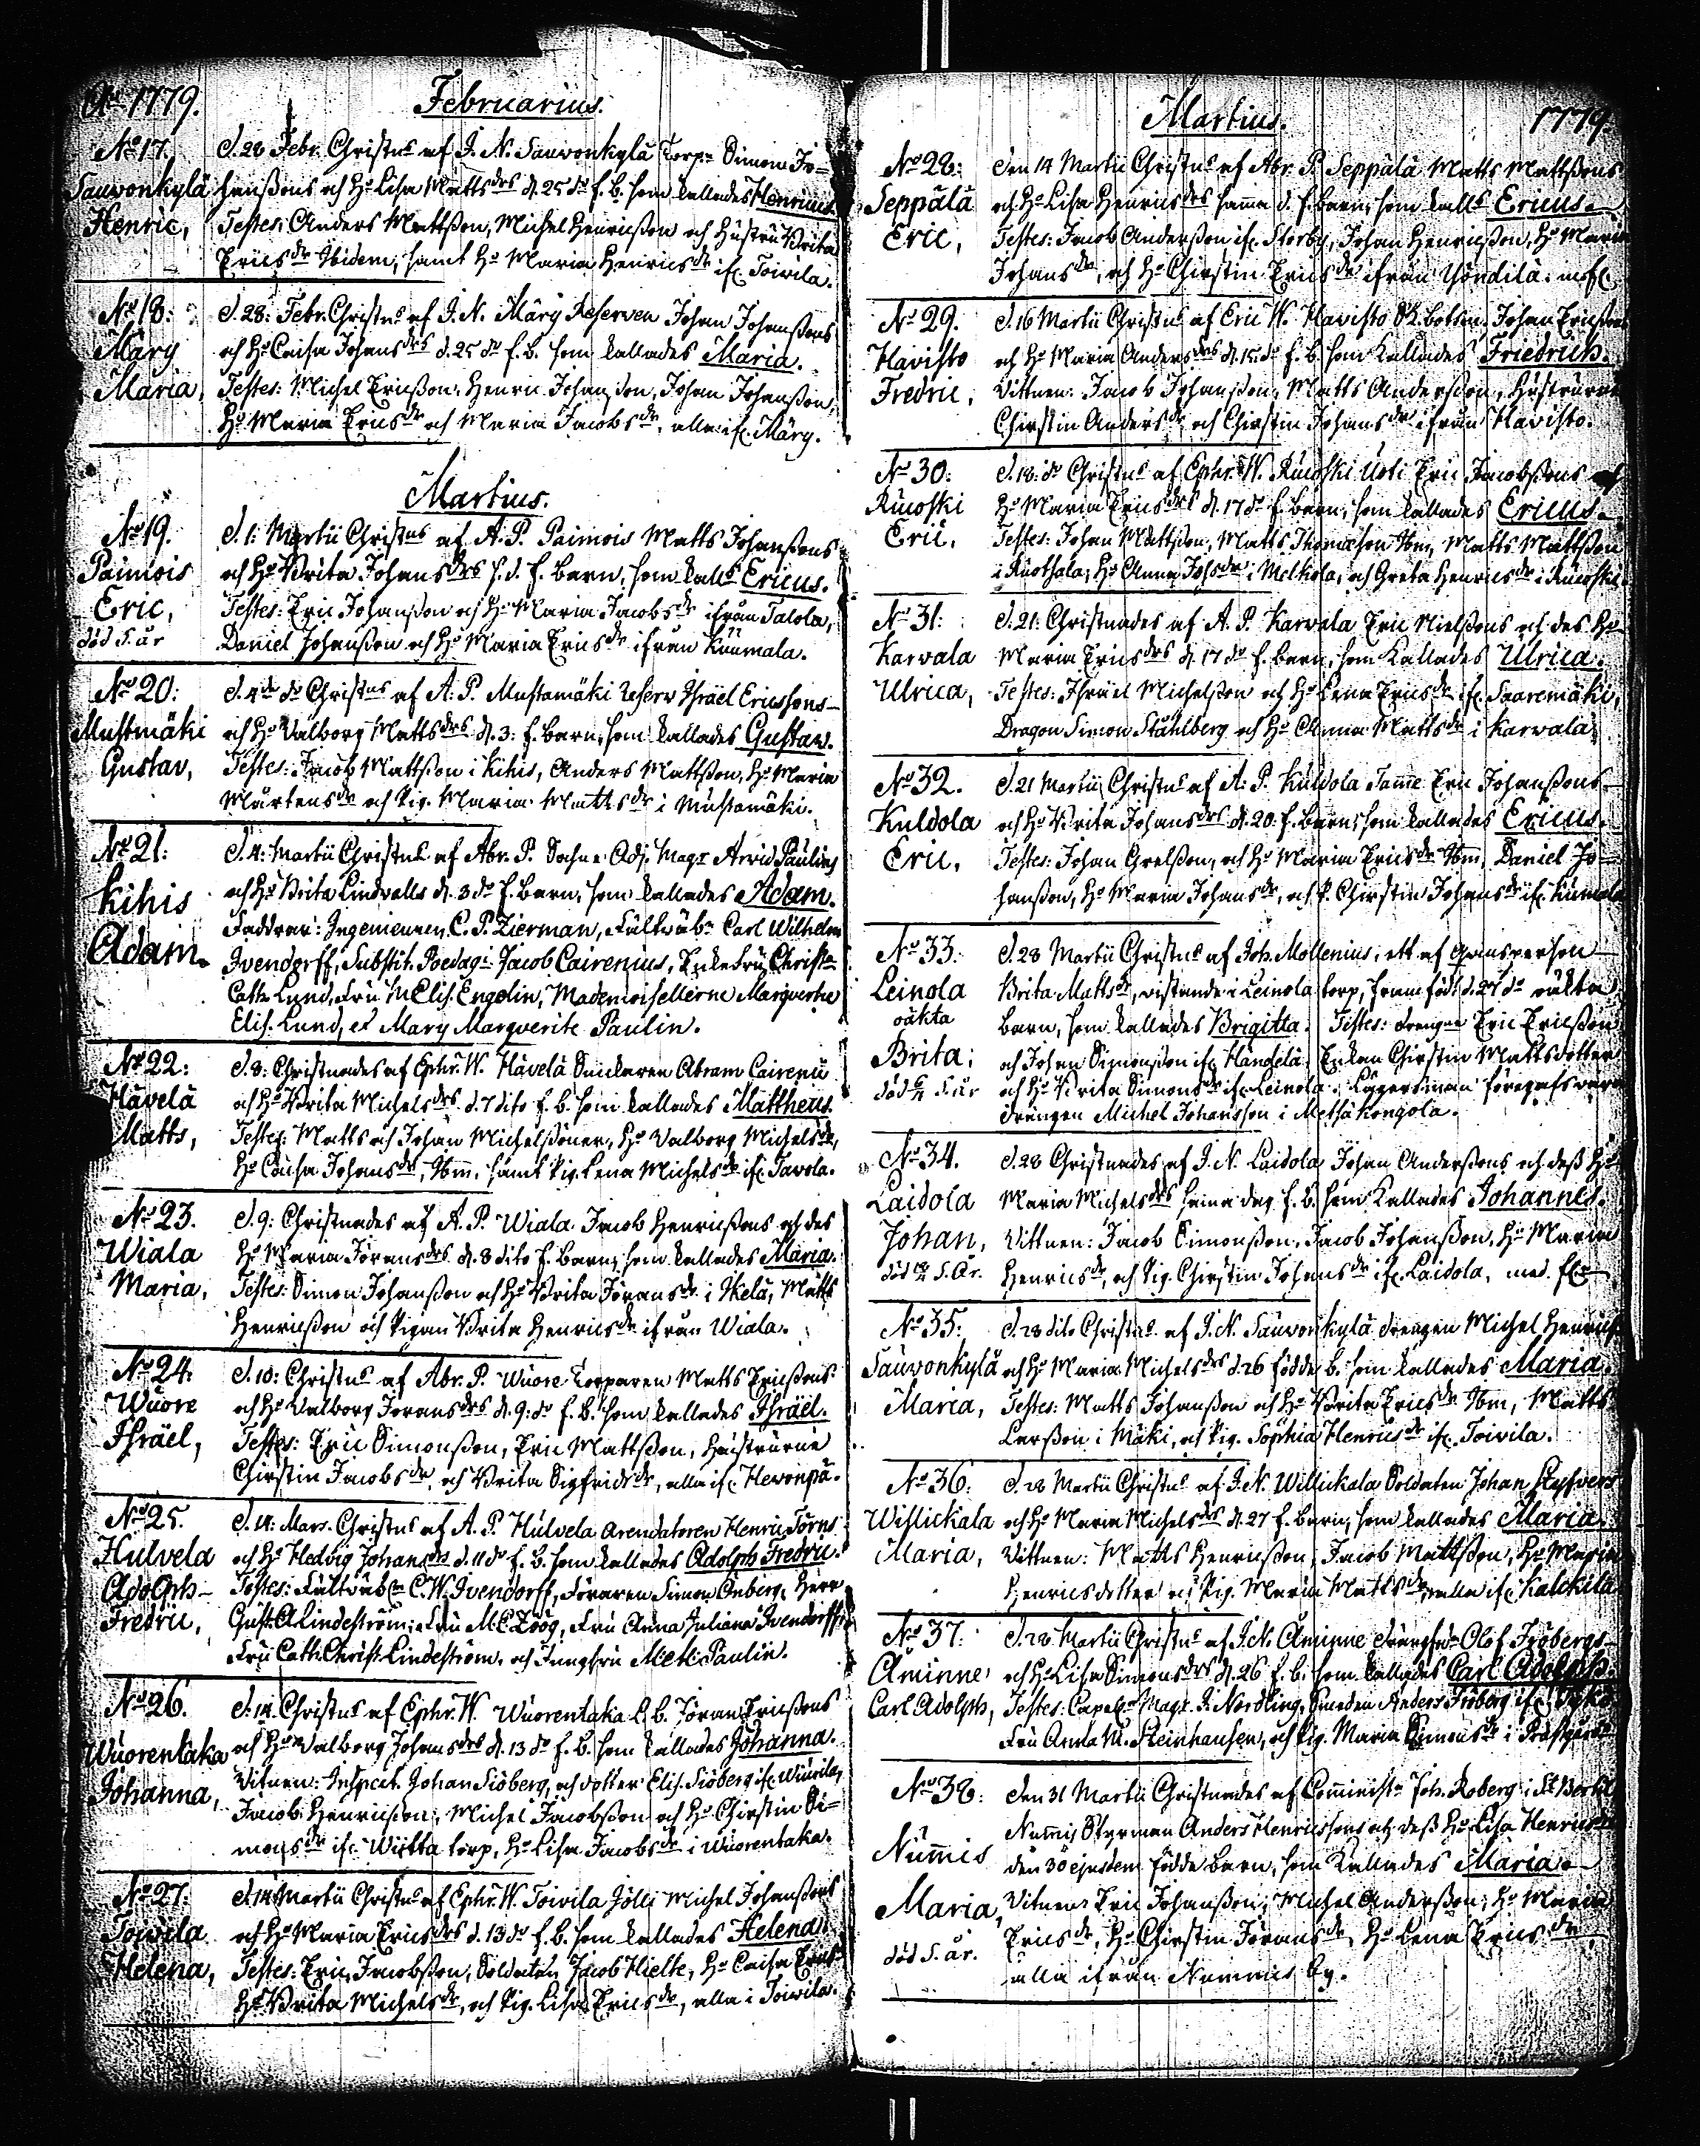 Ao 1779. Februarius.
No 17. D. 28 Febr. Christns af J. N. Sauvonkylä Torp. Simon Jo=
Sauvonkylä hanßons och Ho Lisa Mattsdrs d. 25 do f. b. som kallades Henricus.
Henric, Testes: Anders Mattßon, Michel Henricßon och Hustru Brita
Ericsdr Ibidem, samt Ho Maria Henricsdr if. Toivila.
No 18: D. 28: Febr. Christns af J. N. Märy Reserven Johan Johanßons
Märy och Ho Caisa Johansdrs d. 25 do f. b. som kallades Maria.
Maria, Testes: Michel Ericßon, Henric Johanßon, Johan Johanßon,
Ho Maria Ericsdr och Maria Jacobsdr, alla if. Märy.
Martius.
No 19. D. 1: Martii Christns af A. P. Paimois Matts Johanßons
Paimois och Ho Brita Johansdrs s. d. f. barn, som kalls Ericus.
Eric, Testes: Eric Johanßon och Ho Maria Jacobsdr ifrån Talola,
död s. år Daniel Johanßon och Ho Maria Ericsdr ifrån Kuumala.
No 20: D. 4 do Christns af A. P. Mustamäki Reserv Israël Ericssons
Mustmäki och Ho Valborg Mattsdrs d. 3: f. barn, som kallades Gustav.
Gustav, Testes: Jacob Mattßon i Kihis, Anders Mattßon, Ho Maria
Mårtensdr och Pig. Maria Mattsdr i Mustamäki.
No 21: D. 4: Martii Christns af Abr. P. Sockne Adj. Magr Arvid Paulins
Kihis och Ho Brita Lindvalls d. 3 do f. barn, som kallades Adam.
Adam. Faddrar: Ingenieuren C. P. Zierman, Fältväb. Carl Wilhelm
Ivendorff, Substit. Paedag: Jacob Cairenius, Enkefru Christ.
Cath. Lund, Fru M Elis. Engelin, Mademoisellerne Margverite
Elis. Lund, et Mary Margverite Paulin.
No 22: D. 8: Christnades af Ephr. W. Hävelä Sacklaren Abram Cairenii
Hävelä och Ho Brita Michelsdrs d. 7 dito f. b. som kallades Mattheus.
Matts, Testes: Matts och Johan Michelßöner, Ho Valborg Michelsdr,
Ho Caisa Johansdr, Ibm. samt Pig. Lena Michelsdr if. Tavola.
No 23. D. 9: Christnades af A. P. Wiala Jacob Henricßons och des
Wiala Ho Maria Jöransdrs d. 8 dito f. barn, som kallades Maria.
Maria, Testes: Simon Johanßon och Ho Brita Jöransdr i Ikelä, Matts
Henricßon och Pigan Brita Henricsdr ifrån Wiala.
No 24: D. 10: Christns af Abr. P. Wuore Torparen Matts Ericßons
Wuore och Ho Valborg Jöransdrs d. 9: do f. b. som kallades Israël.
Israël, Testes: Eric Simonßon, Eric Mattßon, Hustrurne
Chirstin Jacobsdr och Brita Sigfridsdr, alla if. Hevonpä.
No 25. D. 14: Mars. Christns af A. P. Hulvela Arendatoren Henric Törns
Hulvela och Ho Hedvig Johansdrs d. 11 do f. b. som kallades Adolph Fredric.
Adolph- Testes: Fältväb. C. W. Ivendorff, Föraren Simon Enberg, Herr
Fredric, Gust. A Lindeström, Fru M. C. Zöög, Fru Anna Juliana Ivendorff,
Fru Cath. Christ. Lindeström, och Jungfru M. M. Paulin.
No 26. D. 14. Christns af Ephr. W. Wuorentaka L. b. Jöran Ericßons
Wuorentaka och Ho Valborg Johansdrs d. 13 do f. b. som kallades Johanna.
Johanna, Vitnen: Inspect. Johan Siöberg, och dotter Elis. Siöberg if. Wiurila,
Jacob Henricßon, Michel Jacobßon och Ho Chirstin Si=
monsdr if. Wiitta torp, Ho Lisa Jacobsdr i Wuorentaka.
No 27: D. 14 Martii Christns af Ephr. W. Toivila Jölli Michel Johanßons
Toivila och Ho Maria Ericsdrs d. 13 do f. b. som kallades Helena.
Helena, Testes: Eric Jacobßon, Soldaten Jacob Hielte, Ho Caisa Ericsdr
Ho Brita Michelsdr, och Pig. Lisa Ericsdr, alla i Toivila.
Martius. 1779.
No 28: Den 14 Martii Christns af Abr. P. Seppälä Matts Mattßons
Seppälä och Ho Lisa Henricsdrs samma d. f. barn, som kalls Ericus.
Eric, Testes: Jacob Anderßon if. Storby, Johan Henricßon, Ho Maria
Johansdr, och Ho Chirstin Ericsdr ifrån Yöndilä.
No 29. D. 16 Martii Christns af Eric W. Havisto Båtsm. Johan Ericßons
Havisto och Ho Maria Andersdrs d. 15: do f. b. som kallades Friedrich.
Fredric, Vittnen: Jacob Johanßon, Matts Anderßon, Hustrurne
Chirstin Andersdr och Chirstin Johansdr ifrån Havisto.
No 30: D. 18: do Christns af Ephr. W. Ruoski Uoti Eric Jacobßons och
Ruoski Ho Maria Ericsdrs d. 17 do f. barn, som kallades Ericus.
Eric, Testes: Johan Mattßon, Matts Thomasson Ibm, Matts Mattßon
i Ruotsala, Ho Anna Johsdr i Melkola, och Greta Henricsdr i Ruoski.
No 31: D. 21: Christnades af A. P. Karvala Eric Nielßons och des Ho
Karvala Maria Ericsdrs d. 17 do f. barn, som kallades Ulrica.
Ulrica, Testes: Israel Michelßon och Ho Lena Ericsdr if. Saaremäki,
Dragon Simon Ståhlberg och Ho Anna Mattsdr i Karvala.
No 32. D. 21 Martii Christns af A: P. Kuldola Tamme Eric Johanßons
Kuldola och Ho Brita Johansdrs d. 20. f. barn, som kallades Ericus.
Eric, Testes: Johan Grelßon, och Ho Maria Ericsdr Ibm, Daniel Jo-
hanßon, Ho Maria Johansdr, och P. Chirstin Johansdr if. Kumala
No 33: D. 28 Martii Christns af Joh. Mollenius, ett af qvinsperson
Leinola Brita Mattsdr, vistande i Leinola torp, framfödt d. 27 do oäkta
oäkta barn, som kallades Brigitta. Testes: Drengen Eric Ericßon
Brita, och Johan Simonßon if. Händelä, Enkan Chirstin Mattsdotter
död s. år och Ho Brita Simonsdr if. Leinola. Lägersman föregafs vara
Drengen Michel Johansson i Metsäkongola.
No 34. D. 28 Christnades af J. N. Laidola Johan Anderßons och deß Ho
Laidola Maria Michelsdrs samma dag f. b. som kallades Johannes.
Johan, Vittnen: Jacob Simonßon, Jacob Johanßon, Ho Maria
död s. År. Henricsdr, och Pig. Chirstin Johansdr if. Laidola, med fl.
No 35: D. 28 dito Christns af J. N. Sauvonkylä Drengen Michel Henrics
Sauvonkylä och Ho Maria Michelsdrs d. 26 födde b. som kallades Maria.
Maria, Testes: Matts Johanßon och Ho Brita Ericsdr Ibm, Matts
Larßon i Mäki, och Pig. Sophia Henricsdr if. Toivila.
No 36: D. 28 Martii Christns af J. N. Willickala Soldaten Johan
Willickala och Ho Maria Michelsdrs d. 27 f. barn, som kallades Maria.
Maria, Vittnen: Matts Henricßon, Jacob Mattßon, Ho Maria
Henricsdotter och Pig. Maria Mattsdr, alla if. Kalckila
No 37: D. 28 Martii Christns af J. N. Åminne Olof Fröbergs
Åminne och Ho Lisa Simonsdrs d. 26 f. b. som kallades Carl Adolph.
Carl Adolph, Testes: Capel. Magr. J. Nordling, Smeden Anders Fröberg if.
Fru Anna M. Steinhausen, och Pig. Maria Simonsdr i Prästgården
No 38: Den 31 Martii Christnades af Comminist. Joh. Roberg i St Bertil
Nummis Nummis Styrman Anders Henricssons och deß Ho Lisa Henricsdrs
den 30 ejusdem födde barn, som kallades Maria.
Maria, Vitnen Eric Johanßon, Michel Anderßon, Ho Maria
död s. år. Ericsdr, Ho Chirstin Jöransdr, Ho Lena Ericsdr
alla ifrån Nummis by.